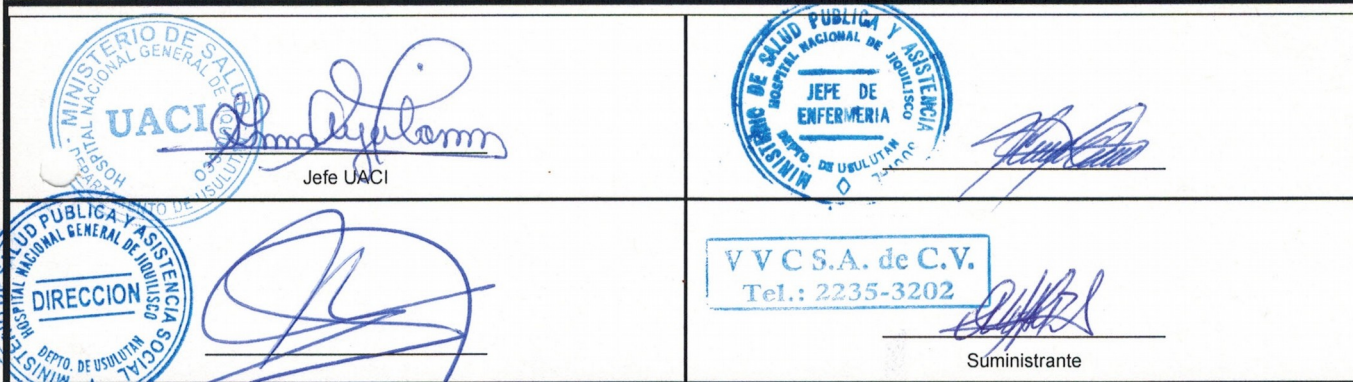 MINISTERIO DE SALUD
HOSPITAL NACIONAL GENERAL DE JIQUILISCO
UACI
DEPARTAMENTO DE USULUTAN
Jefe UACI
MINISTERIO DE SALUD PUBLICA Y ASISTENCIA SOCIAL
HOSPITAL NACIONAL DE JIQUILISCO
JEFE DE
ENFERMERIA
DEPTO. DE USULUTAN
SALUD PUBLICA Y ASISTENCIA SOCIAL
HOSPITAL NACIONAL GENERAL DE JIQUILISCO
DIRECCION
DEPTO. DE USULUTAN
V V C S.A. de C.V.
Tel.: 2235-3202
Suministrante